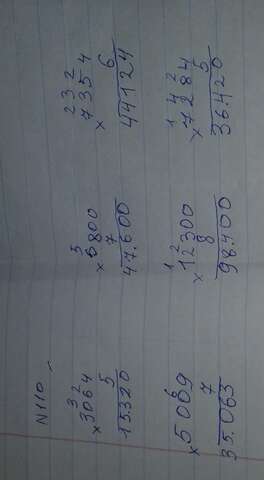 N110
3 2
× 3064
5
15.320
5
× 6800
7
47.600
2 3 2
7354
×
6
44124
6
× 5009
7
35.063
1 2
× 12300
8
98.400
1 4 2
× 7284
5
36.420